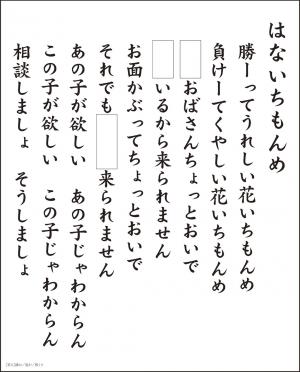 はないちもんめ
勝ーってうれしい花いちもんめ
負けーてくやしい花いちもんめ
おばさんちょっとおいで
いるから来られません
お面かぶってちょっとおいで
それでも 来られません
あの子が欲しい あの子じゃわからん
この子が欲しい この子じゃわからん
相談しましょ そうしましょ